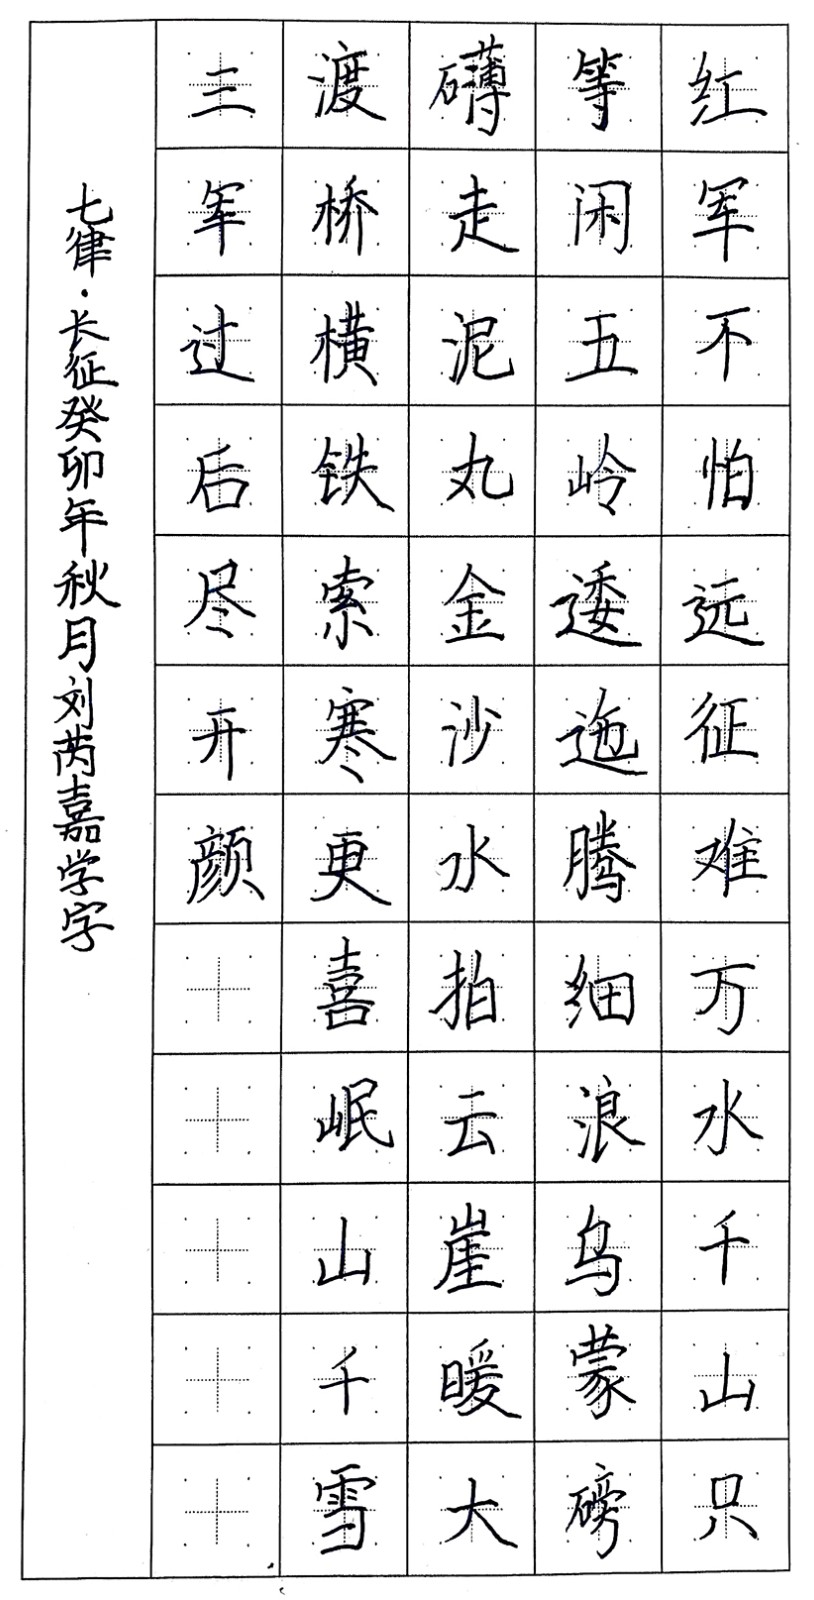 红军不怕远征难万水千山只
等闲五岭逶迤腾细浪乌蒙磅
礴走泥丸金沙水拍云崖暖大
渡桥横铁索寒更喜岷山千雪
三军过后尽开颜
七律·长征癸卯年秋月刘芮嘉学字